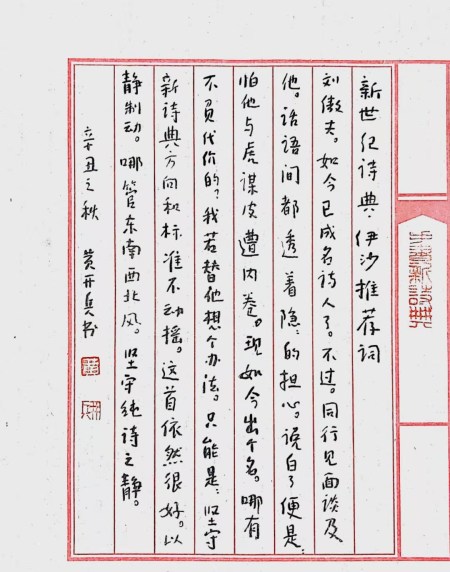 新世纪诗典·伊沙推荐词
刘傲夫。如今已成名诗人了。不过。同行见面谈及
他。话语间都透着隐:的担心。说白了便是:
怕他与虎谋皮遭内卷。现如今出个名。哪有
不负代价的?我若替他想个办法。只能是:坚守
新诗典方向和标准不动摇。这首依然很好。以
静制动。哪管东南西北风。坚守纯诗之静。
辛丑之秋 黄开兵书